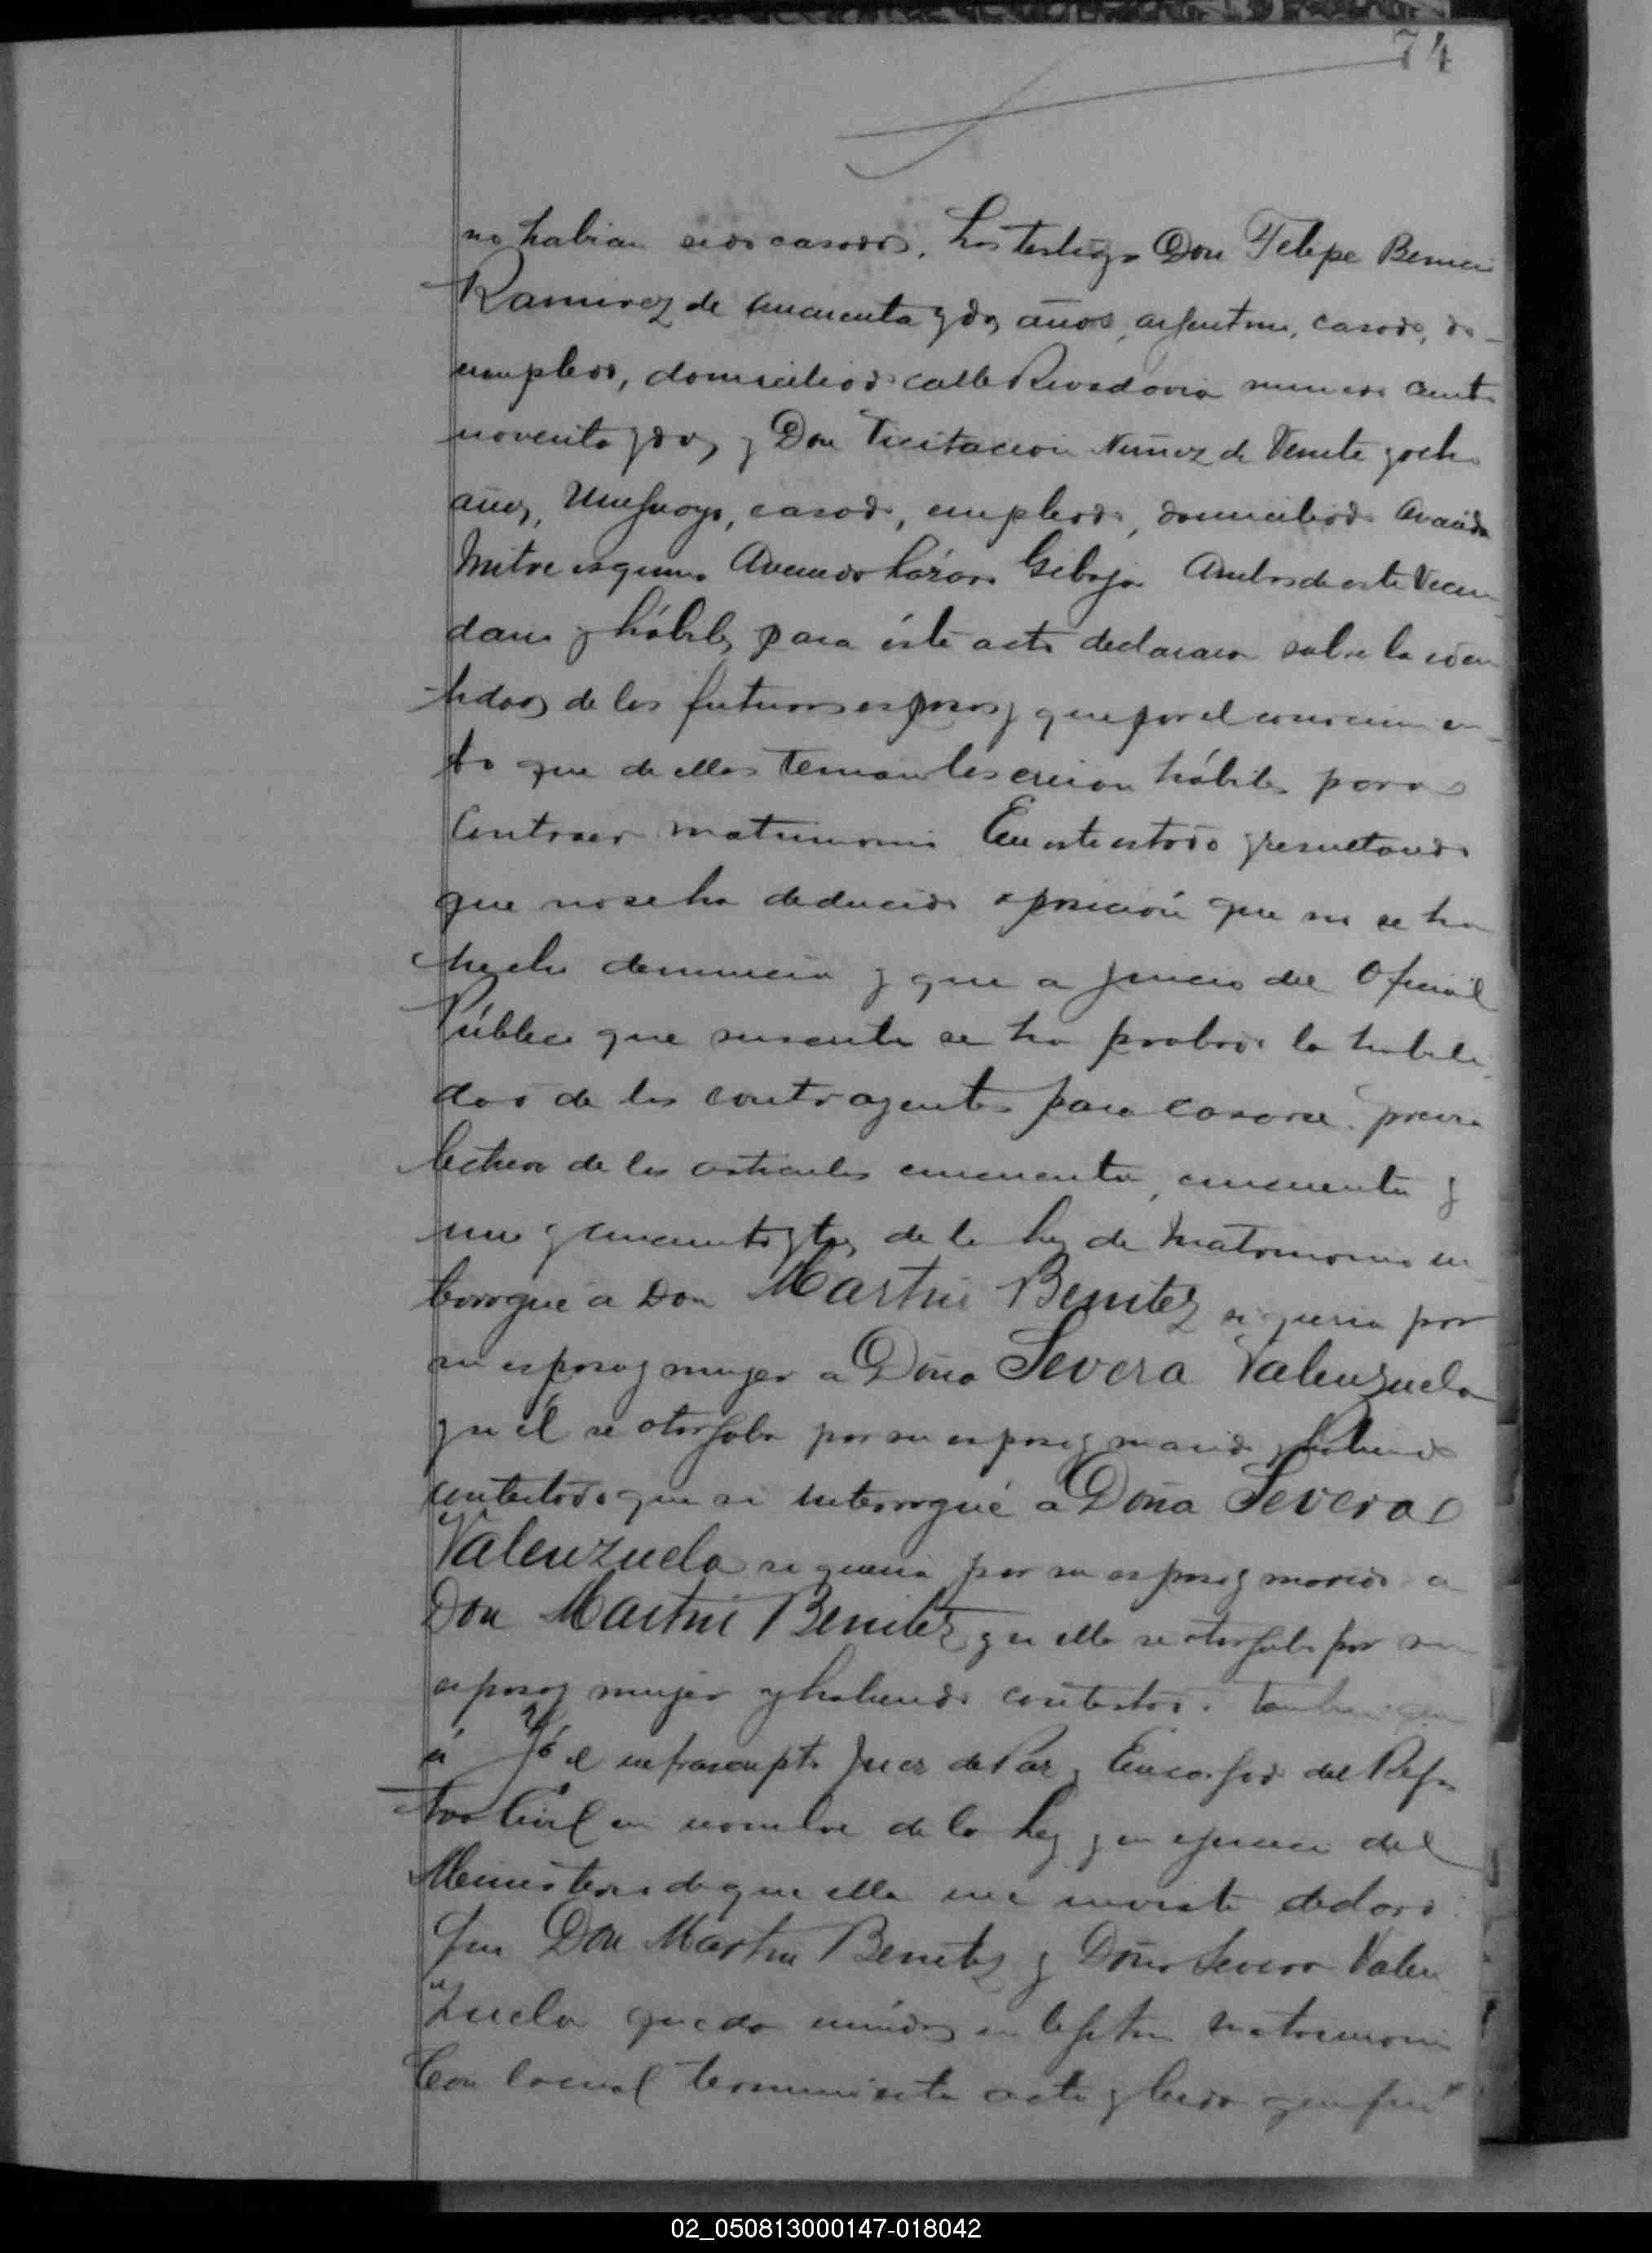 74
no habian sido casados. Los testigos Don Felipe
Ramirez de cincuenta y dos años, argentino, casado, de
empleado, domiciliado calle Rivadavia numero ciento
noventa y dos y Don Vicitacion Nuñez de Veinte y ocho
años, Uruguayo, casado, empleado, domiciliado Avenida
Mitre esquina Avenida Lázaro Gibaja Ambos de este Vecin-
dario y hábiles para éste acto declararon sobre la iden
-tidad de los futuros esposos y que por el conocimien-
to que de ellos tenian les creian hábiles para
Contraer matrimonio En este estado y resultando
que no se ha deducido oposición que no se ha
hecho denuncia y que a juicio del Oficial
Público que suscribe se ha probado la habili-
dad de los contrayentes para casarse previa
lectura de los articulos cincuenta, cincuenta y
uno y cincuenta y tres de la Ley de Matrimonio in
terrogué a Don Martin Benitez si queria por
su esposa y mujer a Doña Severa Valenzuela
y si él se otorgaba por su esposo y marido y habiendo
contestado que si interrogué a Doña Severa
Valenzuela si queria por su esposo y marido a
Don Martin Benitez y si ella se otorgaba por su
esposa y mujer y habiendo contestado tambien que
si Yó el infrascripto Juez de Paz y Encargado del Regis
tro Civil en nombre de la Ley y en ejercicio del
Ministerio de que ella me inviste declaro:
Que Don Martin Benitez y Doña Severa Valen
"zuela quedan unidos en legitimo matrimonio
Con lo cual terminó esta acta y leida que fué
02_050813000147-018042